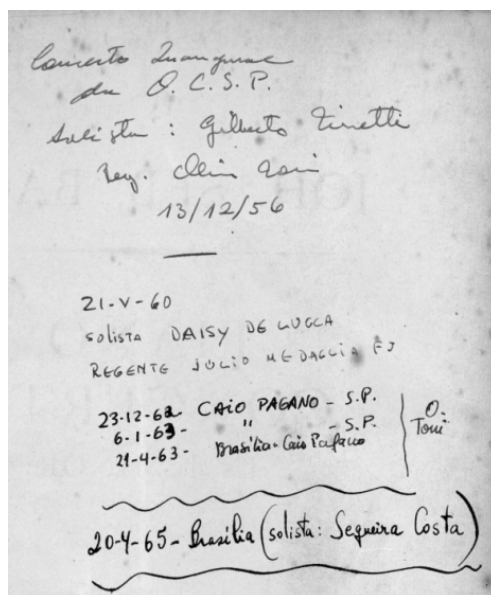 Concerto Inaugural
da O.C.S.P.
Solista : Gilberto Tinetti
Reg. Olivier Toni
13/12/56
21-V-60
solista DAISY DE LUCCA
REGENTE JULIO MEDAGLIA
23-12-62 CAIO PAGANO - S.P.
6-1-63 - " - S.P.
21-4-63 - Brasília - Caio Pagano
O. Toni
20-4-65 - Brasília (solista: Sequeira Costa)